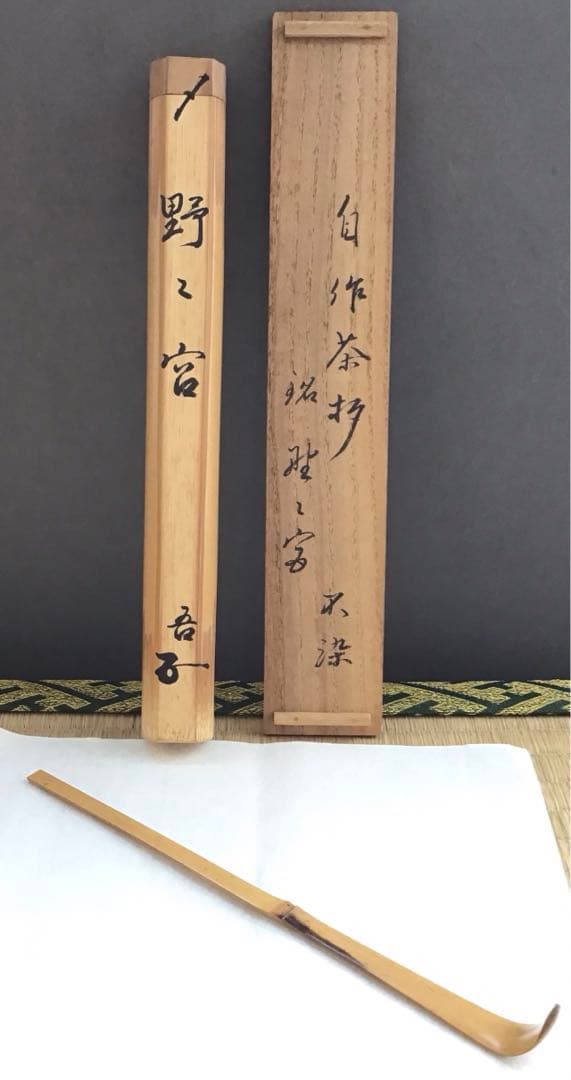 自作茶杓
銘 野〻宮
不染
〆
野〻宮
吾